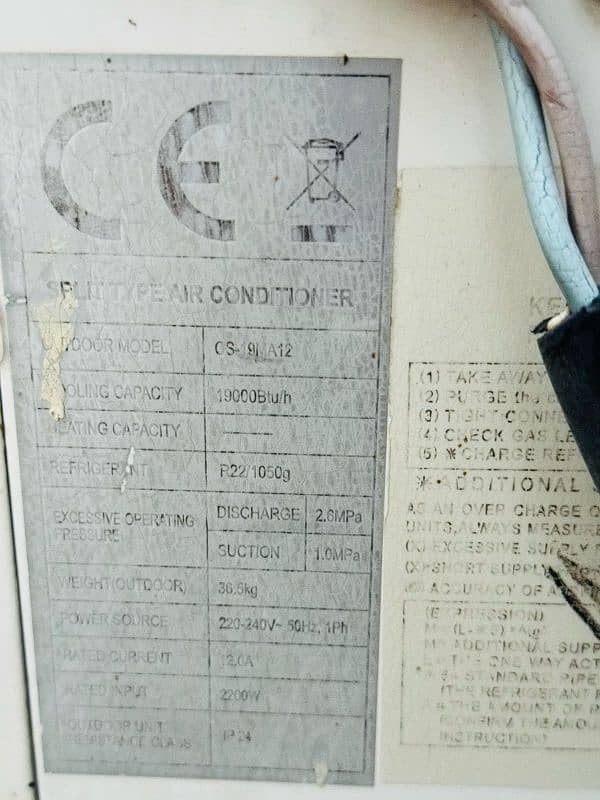 CE
SPLIT TYPE AIR CONDITIONER
OUTDOOR MODEL
COOLING CAPACITY 19000Btu/h
HEATING CAPACITY ———
REFRIGERANT R22/1050g
EXCESSIVE OPERATING PRESSURE DISCHARGE 2.6MPa
SUCTION 1.0MPa
WEIGHT(OUTDOOR) 36.5kg
POWER SOURCE 220-240V~ 50Hz, 1Ph
RATED CURRENT 12.0A
RATED INPUT 2200W
OUTDOOR UNIT
RESISTANCE CLASS IP 24
(1) TAKE AWAY
(2) PURGE the
(3) TIGHT CONNE
(4) CHECK GAS LE
(5) ※CHARGE REF
※ADDITIONAL
AS AN OVER CHARGE O
UNITS,ALWAYS MEASURE
(X) EXCESSIVE SUPPLY
(X) SHORT SUPPLY
ACCURACY OF
(EXPRESSION)
ADDITIONAL SUPP
ONE WAY ACT
STANDARD PIPE
(THE REFRIGERANT
AMOUNT OF
(CONFIRM THE AMOU
INSTRUCTION)